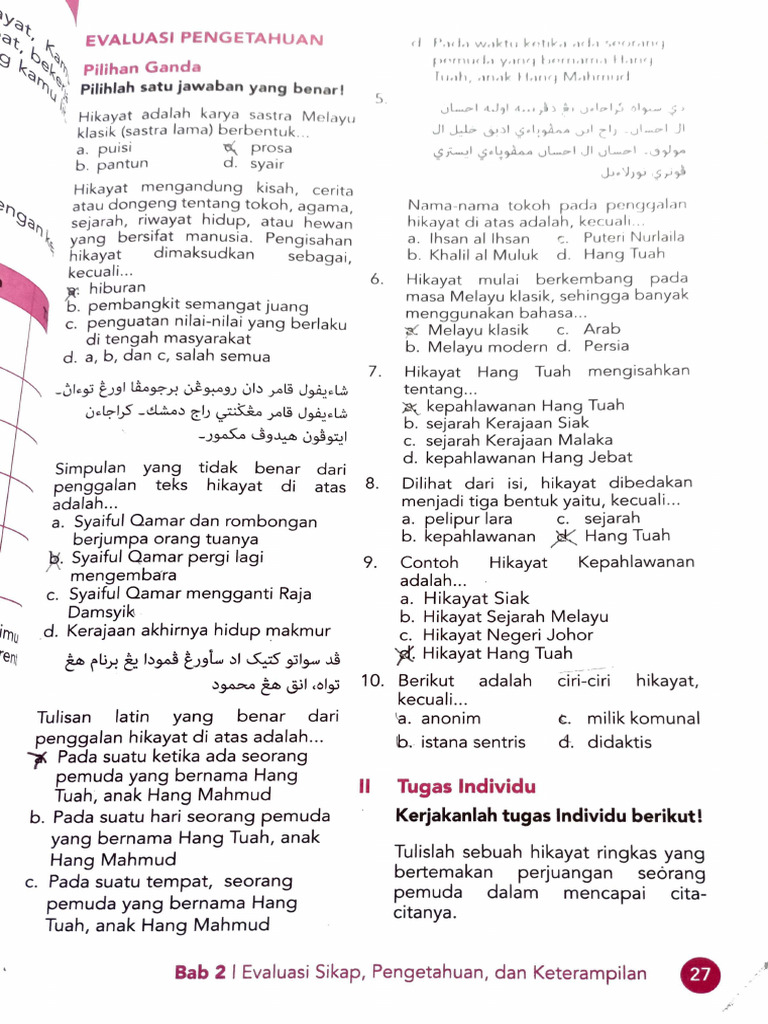 ayat, Kam
at, beke
g kamu
engan ke
imu
rent
EVALUASI PENGETAHUAN
Pilihan Ganda
Pilihlah satu jawaban yang benar!
Hikayat adalah karya sastra Melayu
klasik (sastra lama) berbentuk...
a. puisi c. prosa
b. pantun d. syair
Hikayat mengandung kisah, cerita
atau dongeng tentang tokoh, agama,
sejarah, riwayat hidup, atau hewan
yang bersifat manusia. Pengisahan
hikayat dimaksudkan sebagai,
kecuali...
a. hiburan
b. pembangkit semangat juang
c. penguatan nilai-nilai yang berlaku
di tengah masyarakat
d. a, b, dan c, salah semua
شاءيفول قامر دان رومبوڠن برجومڤا اورڠ توءاڽـ
شاءيفول قامر مڠݢنتي راج دمشكـ كراجاءن
ايتوڤون هيدوڤ مكمورـ
Simpulan yang tidak benar dari
penggalan teks hikayat di atas
adalah...
a. Syaiful Qamar dan rombongan
berjumpa orang tuanya
b. Syaiful Qamar pergi lagi
mengembara
c. Syaiful Qamar mengganti Raja
Damsyik
d. Kerajaan akhirnya hidup makmur
ڤد سواتو كتيک اد سأورڠ ڤمودا يڠ برنام هڠ
تواه، انق هڠ محمود
Tulisan latin yang benar dari
penggalan hikayat di atas adalah...
a. Pada suatu ketika ada seorang
pemuda yang bernama Hang
Tuah, anak Hang Mahmud
b. Pada suatu hari seorang pemuda
yang bernama Hang Tuah, anak
Hang Mahmud
c. Pada suatu tempat, seorang
pemuda yang bernama Hang
Tuah, anak Hang Mahmud
d. Pada waktu ketika ada seorang
pemuda yang bernama Hang
Tuah, anak Hang Mahmud
5.
دي سبواه كراجاءن يڠ اوليه احسان
ال احسانـ راج اين ممڤوياءي اديق خليل ال
مولوقـ احسان ال احسان ممڤوياءي ايستري
ڤوتري نورلاءيل
Nama-nama tokoh pada penggalan
hikayat di atas adalah, kecuali...
a. Ihsan al Ihsan c. Puteri Nurlaila
b. Khalil al Muluk d. Hang Tuah
6. Hikayat mulai berkembang pada
masa Melayu klasik, sehingga banyak
menggunakan bahasa...
a. Melayu klasik c. Arab
b. Melayu modern d. Persia
7. Hikayat Hang Tuah mengisahkan
tentang...
a. kepahlawanan Hang Tuah
b. sejarah Kerajaan Siak
c. sejarah Kerajaan Malaka
d. kepahlawanan Hang Jebat
8. Dilihat dari isi, hikayat dibedakan
menjadi tiga bentuk yaitu, kecuali...
a. pelipur lara c. sejarah
b. kepahlawanan d. Hang Tuah
9. Contoh Hikayat Kepahlawanan
adalah...
a. Hikayat Siak
b. Hikayat Sejarah Melayu
c. Hikayat Negeri Johor
d. Hikayat Hang Tuah
10. Berikut adalah ciri-ciri hikayat,
kecuali...
a. anonim c. milik komunal
b. istana sentris d. didaktis
II Tugas Individu
Kerjakanlah tugas Individu berikut!
Tulislah sebuah hikayat ringkas yang
bertemakan perjuangan seorang
pemuda dalam mencapai cita-
citanya.
Bab 2 | Evaluasi Sikap, Pengetahuan, dan Keterampilan 27